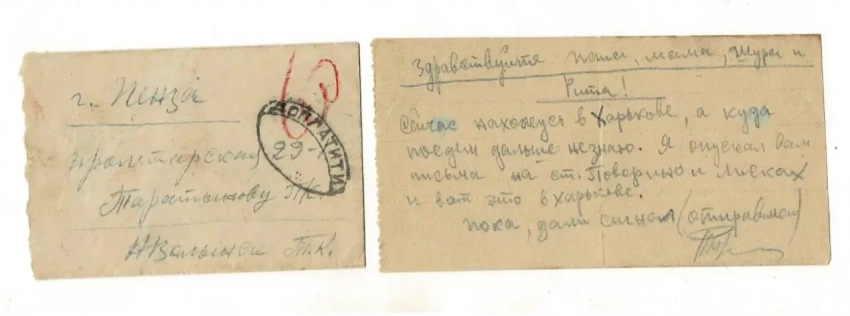 г. Пенза
пролетарская
29-
Таратынову Т.К.
Н Волынск Т.К.
ДОПЛАТИТИ
Здравствуйте папа, мама, Шура и
Рита!
Сейчас нахожусь в Харькове, а куда
поедем дальше незнаю. Я опускал вам
письма на ст. Поворино и Лисках
и вот это в Харькове.
пока, дали сигнал (отправился)